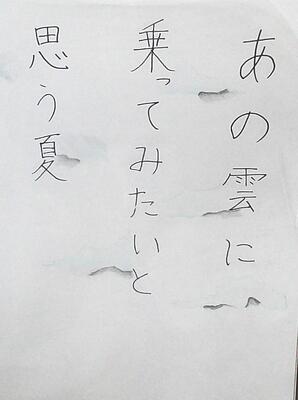 あの雲に
乗ってみたいと
思う夏